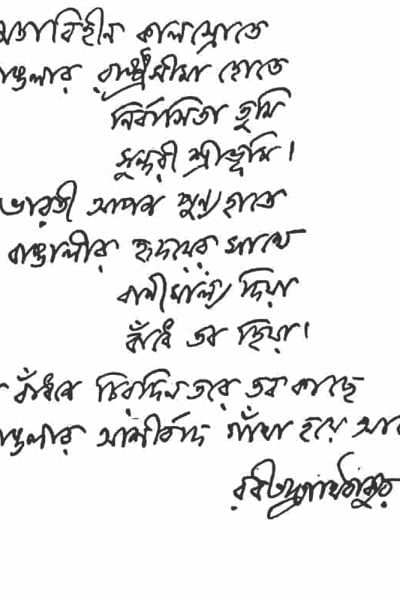 মতাবিহীন কালস্রোতে
াঙলার রাষ্ট্রসীমা হোতে
নির্বাসিতা তুমি
সুন্দরী শ্রীভূমি।
ভারতী আপন পুণ্যহাতে
বাঙালীর হৃদয়ের সাথে
বাণীমাল্য দিয়া
বাঁধে তব হিয়া।
বাঁধনে চিরদিনতরে তব কাছে
াঙলার আশীর্বাদ গাঁথা হয়ে আ
রবীন্দ্রনাথ ঠাকুর